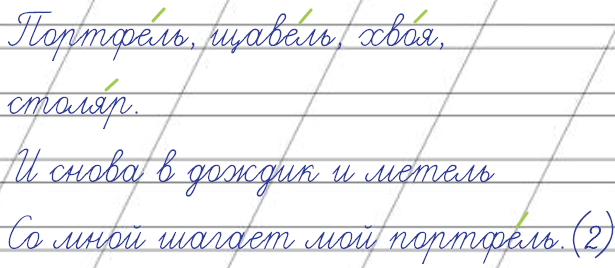 Портфе́ль, щаве́ль, хво́я,
столя́р.
И снова в дождик и метель
Со мной шагает мой портфе́ль. (2)